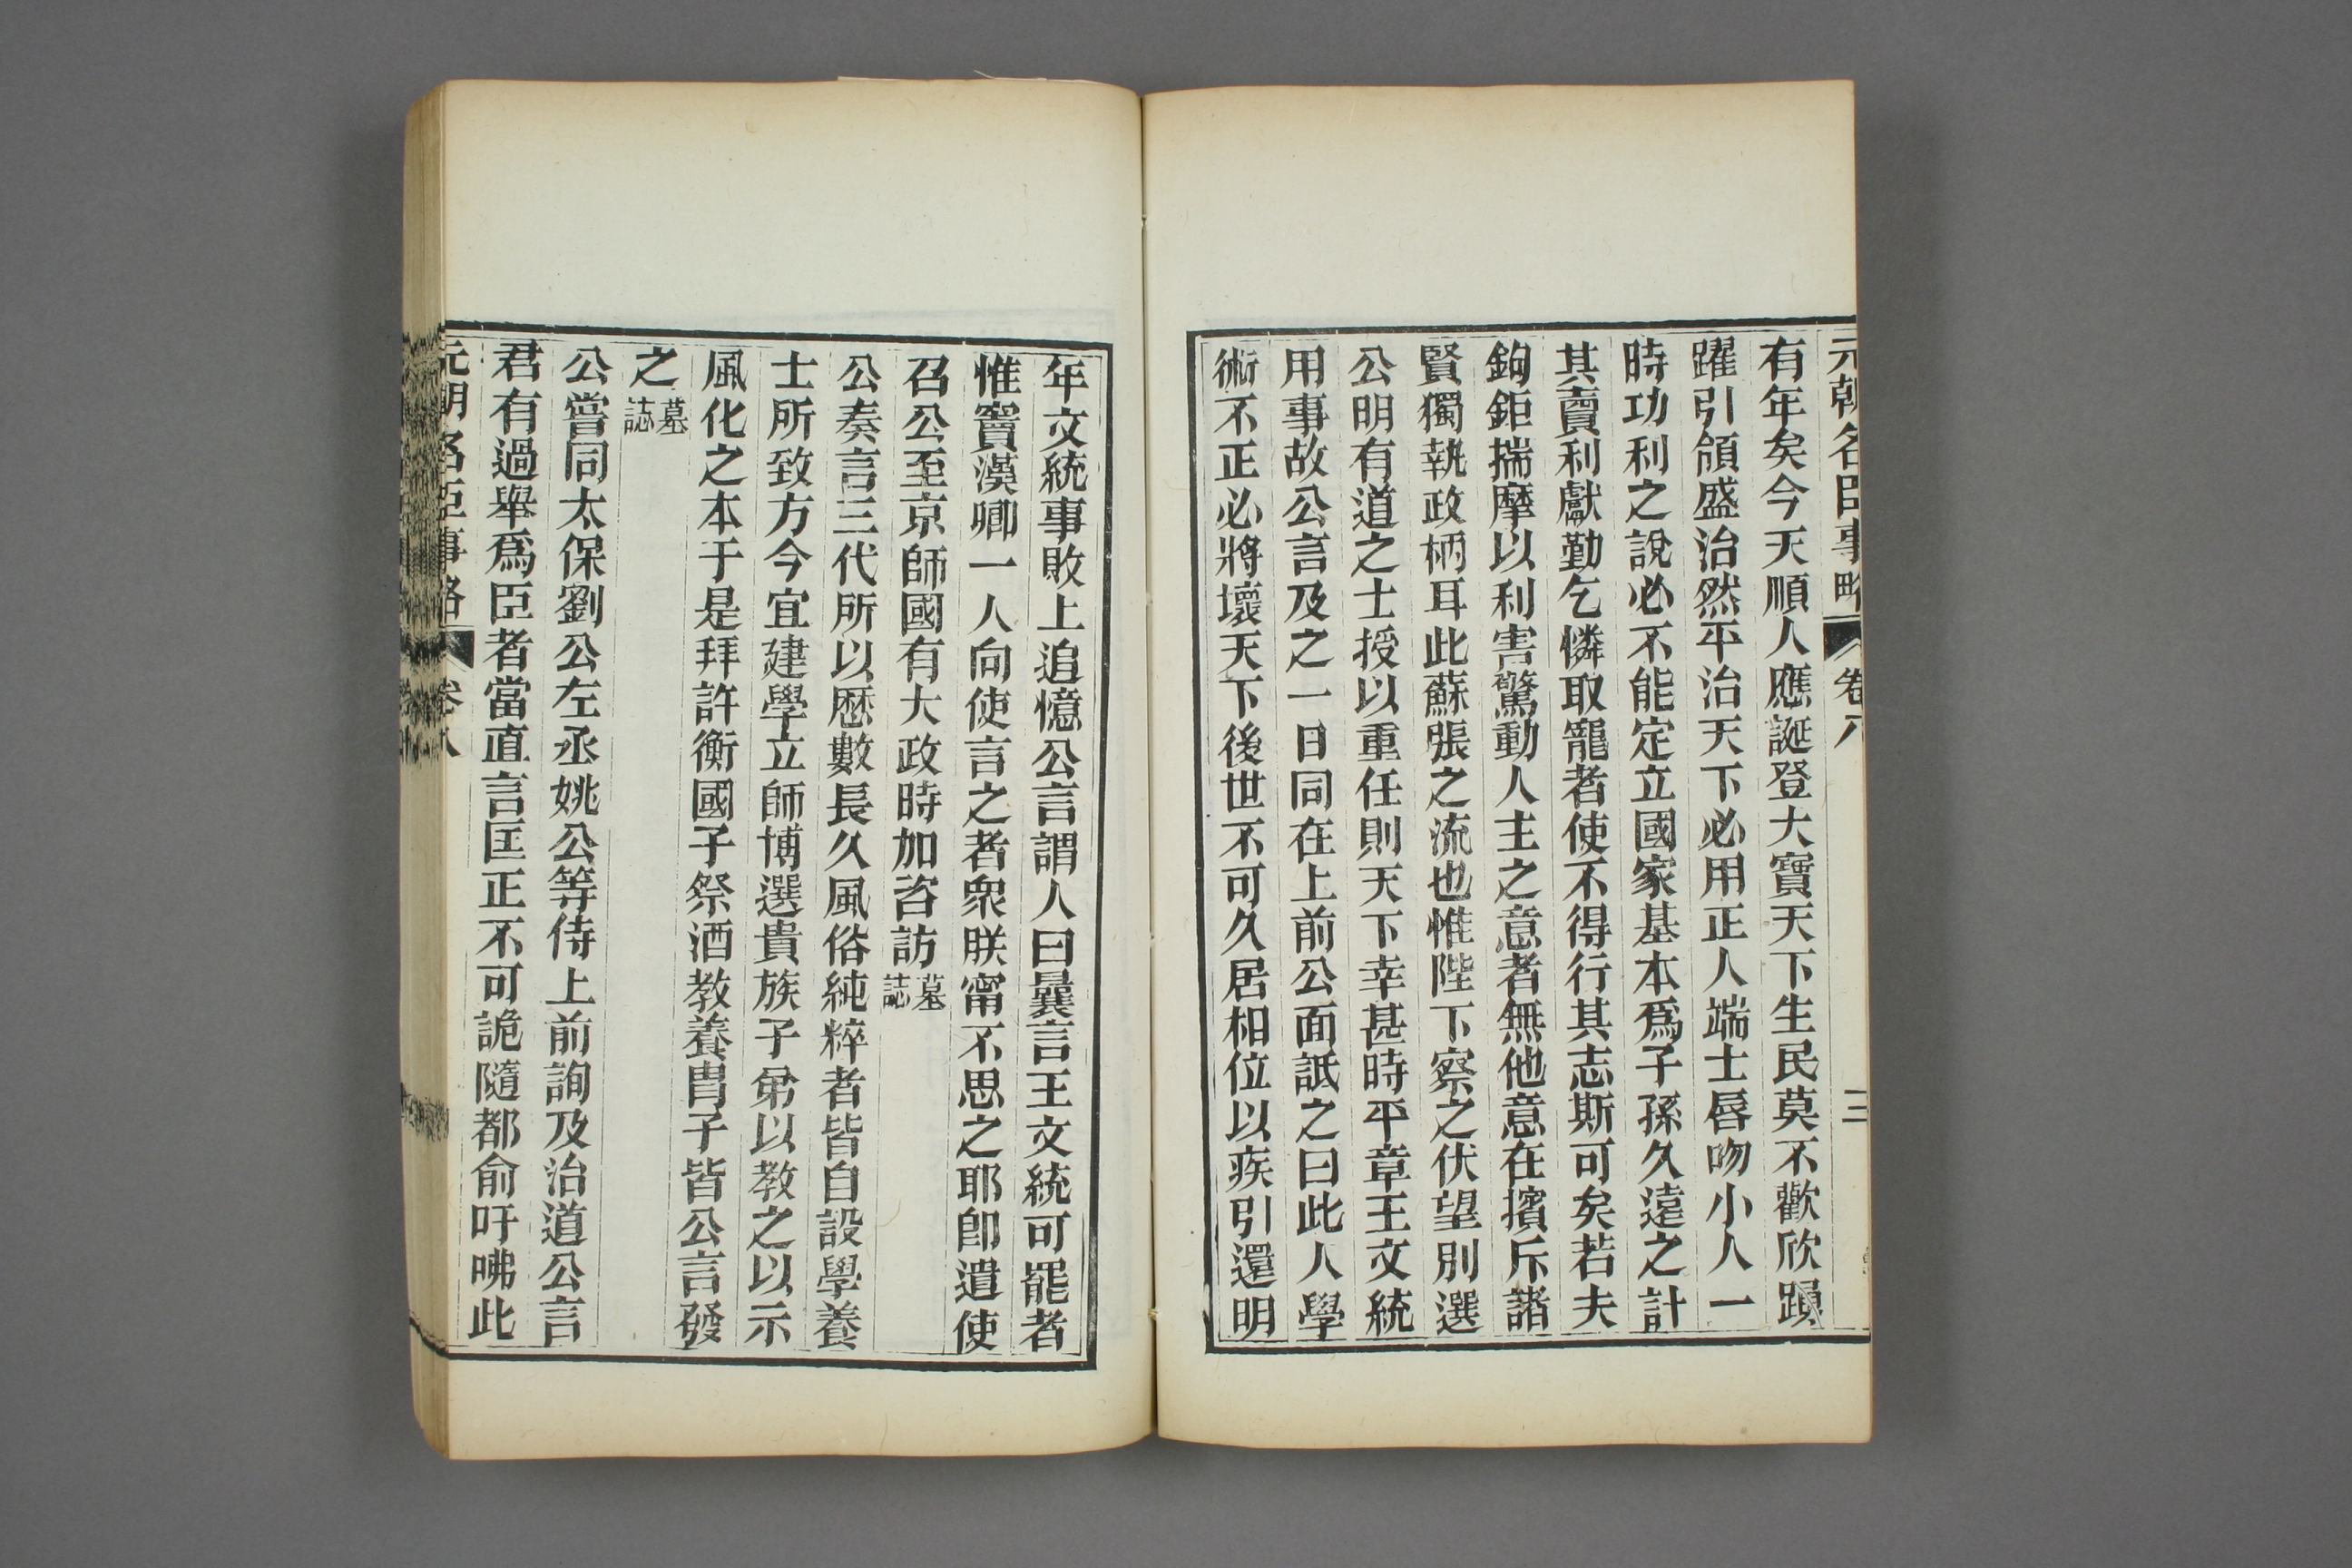 元朝名臣事略 卷八 三
有年矣今天順人應誕登大寶天下生民莫不歡欣踴
躍引領盛治然平治天下必用正人端士唇吻小人一
時功利之說必不能定立國家基本爲子孫久遠之計
其賣利獻勤乞憐取寵者使不得行其志斯可矣若夫
鉤鉅揣摩以利害驚動人主之意者無他意在擯斥諸
賢獨執政柄耳此蘇張之流也惟陛下察之伏望別選
公明有道之士授以重任則天下幸甚時平章王文統
用事故公言及之一日同在上前公面詆之曰此人學
術不正必將壞天下後世不可久居相位以疾引還明
年文統事敗上追憶公言謂人曰曩言王文統可罷者
惟竇漢卿一人向使言之者衆朕甯不思之耶卽遣使
召公至京師國有大政時加咨訪墓誌
公奏言三代所以歷數長久風俗純粹者皆自設學養
士所致方今宜建學立師博選貴族子弟以教之以示
風化之本于是拜許衡國子祭酒教養冑子皆公言發
之墓誌
公嘗同太保劉公左丞姚公等侍上前詢及治道公言
君有過舉爲臣者當直言匡正不可詭隨都俞吁咈此
元朝名臣事略 卷八